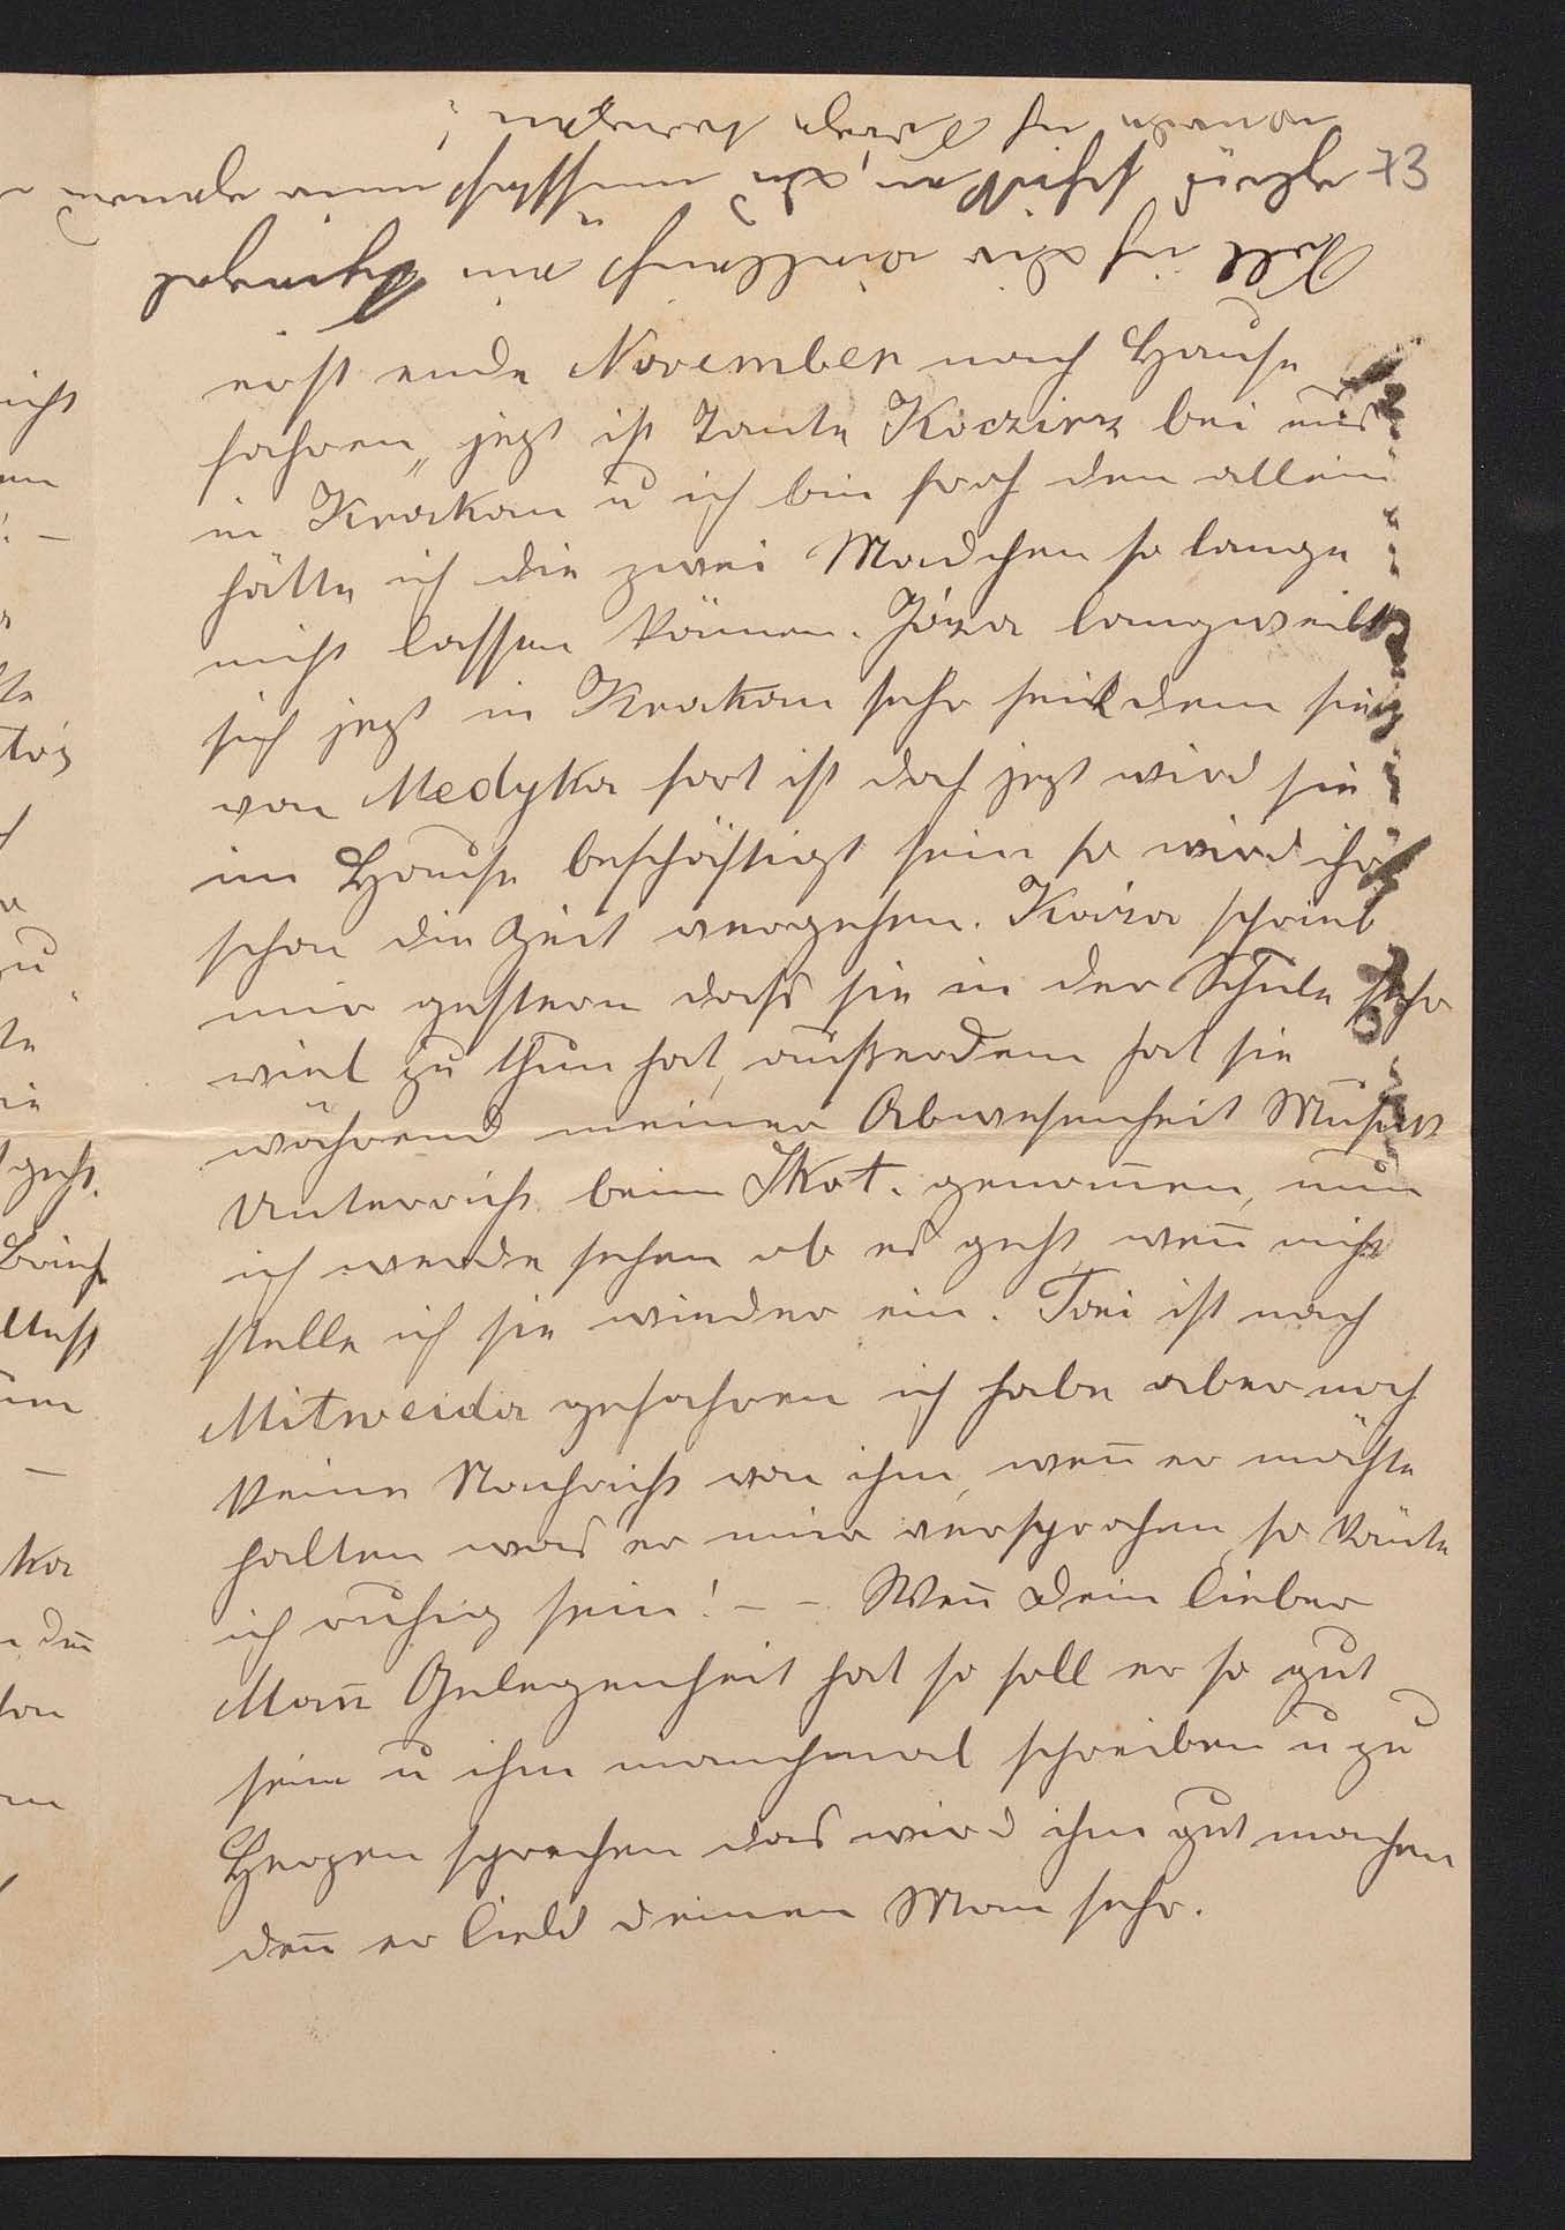 73
Soll ich dir vielleicht ein Spinat
grün schicken, du müsstest mir genau
wenn ich
erst ende November nach Hause
fahren„ jezt ist Tante Koczirz bei uns
in Krakau u ich bin froh den allein
hätte ich die zwei Madchen so lange
nicht lassen können. Józa langweilt
sich jezt in Krakau sehr seit dem sie
von Medyka fort ist doch jezt wird sie
im Hause beschäftigt sein so wird ihr
schon die Zeit vergehen. Kaiza schrieb
mir gestern dass sie in der Schule sehr
viel zu thun hat, außerdem hat sie
während meiner Abwesenheit Musik
Unterricht beim Skot. genom̅en, nun
ich werde sehen ob es geht, wen̅ nicht
stelle ich sie wieder ein. Toni ist nach
Mitweida gefahren ich habe aber noch
keine Nachricht von ihm, wen̅ er möchte
halten was er mir versprochen, so könte
ich ruhig sein! – – Wen̅ Dein lieber
Man̅ Gelegenheit hat so soll er so gut
sein u ihm manchmal schreiben u zu
Herzen sprechen das wird ihm gut machen
den̅ er liebt deinen Man sehr.